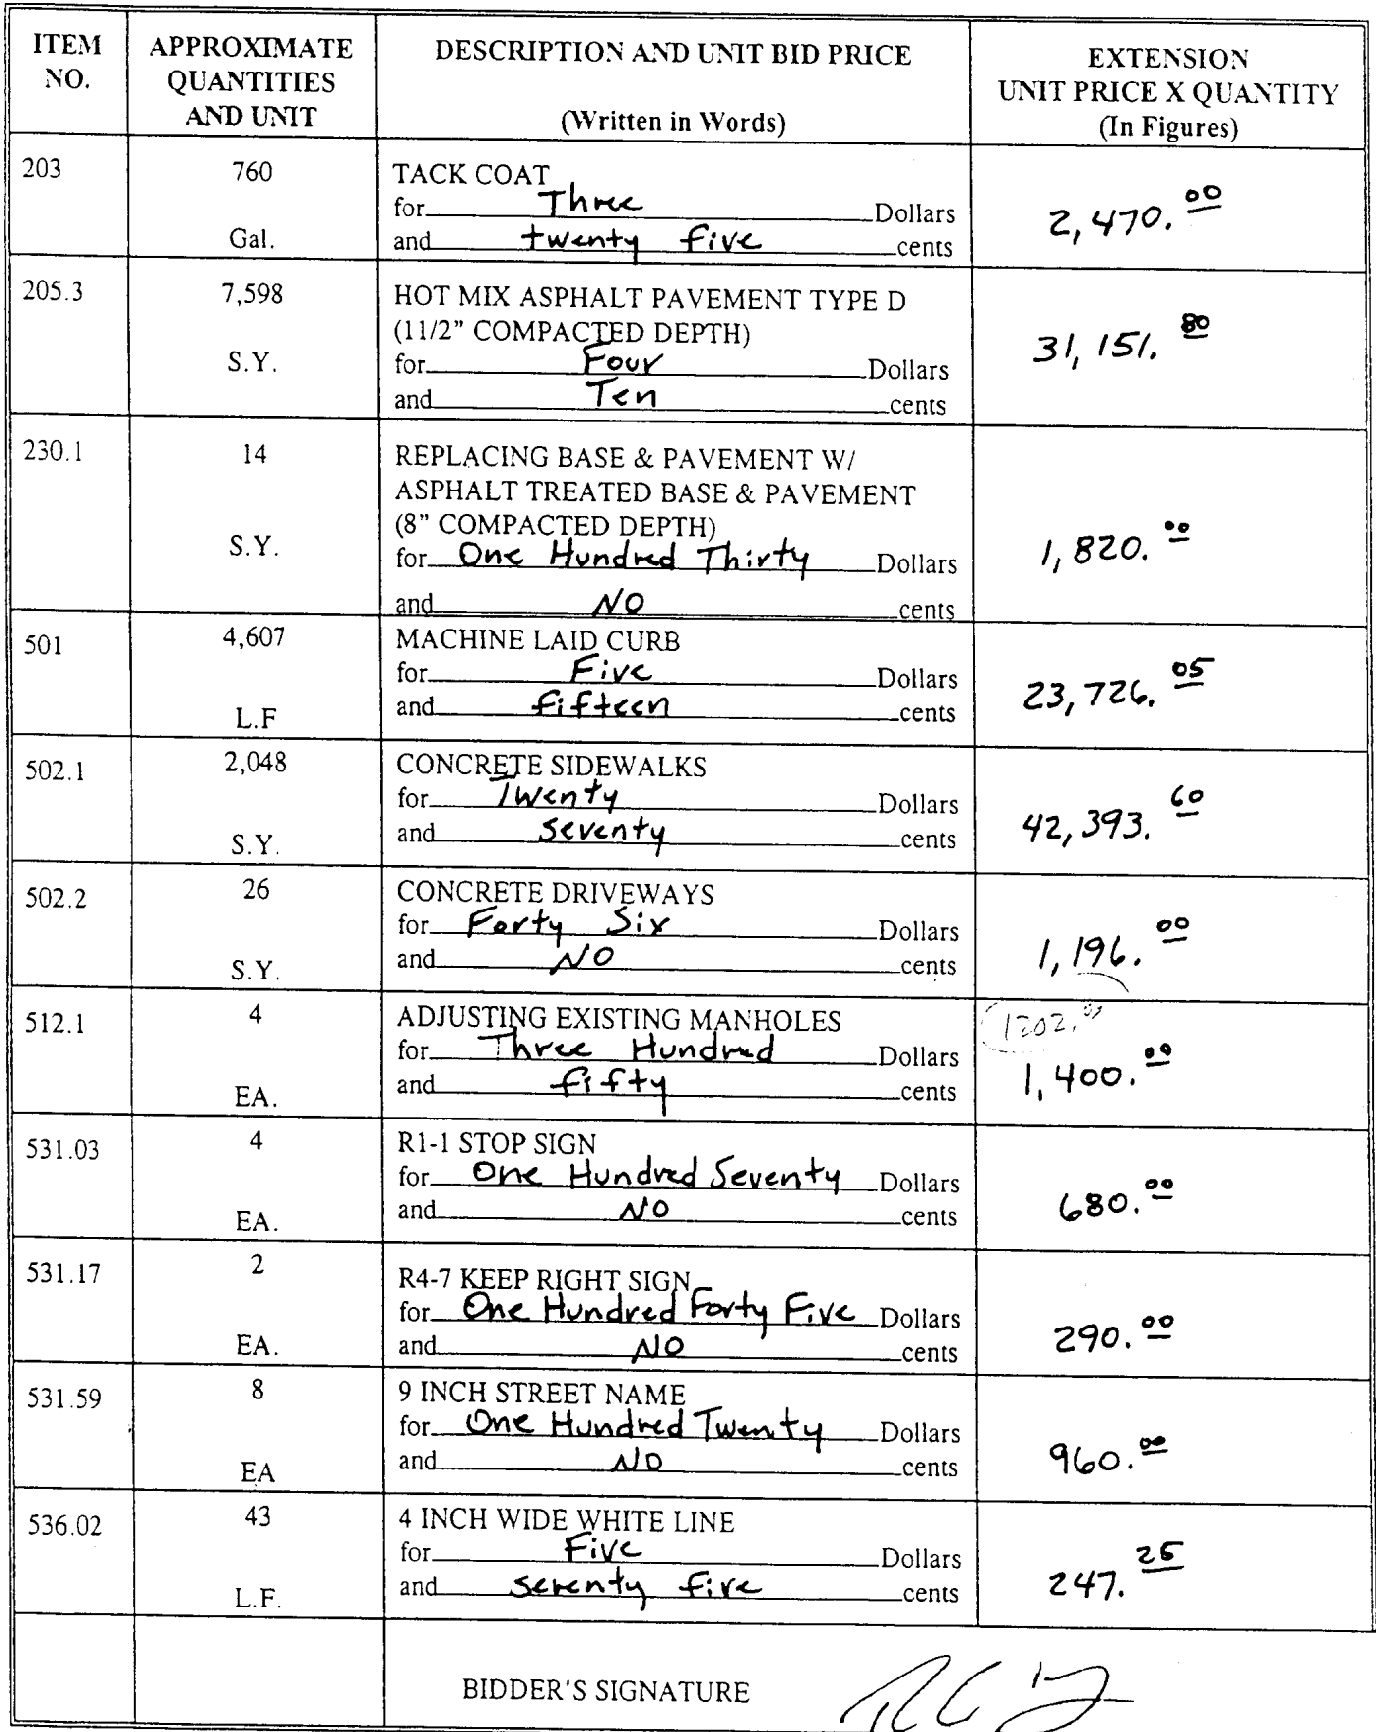 ITEM NO. APPROXIMATE QUANTITIES AND UNIT DESCRIPTION AND UNIT BID PRICE (Written in Words) EXTENSION UNIT PRICE X QUANTITY (In Figures)
203 760 Gal. TACK COAT
for Three Dollars
and twenty five cents
2,470.00
205.3 7,598 S.Y. HOT MIX ASPHALT PAVEMENT TYPE D
(11/2" COMPACTED DEPTH)
for Four Dollars
and Ten cents
31,151.80
230.1 14 S.Y. REPLACING BASE & PAVEMENT W/
ASPHALT TREATED BASE & PAVEMENT
(8" COMPACTED DEPTH)
for One Hundred Thirty Dollars
and NO cents
1,820.00
501 4,607 L.F MACHINE LAID CURB
for Five Dollars
and fifteen cents
23,726.05
502.1 2,048 S.Y. CONCRETE SIDEWALKS
for Twenty Dollars
and seventy cents
42,393.60
502.2 26 S.Y. CONCRETE DRIVEWAYS
for Forty Six Dollars
and NO cents
1,196.00
512.1 4 EA. ADJUSTING EXISTING MANHOLES
for Three Hundred Dollars
and fifty cents
1202.00
1,400.00
531.03 4 EA. R1-1 STOP SIGN
for One Hundred Seventy Dollars
and NO cents
680.00
531.17 2 EA. R4-7 KEEP RIGHT SIGN
for One Hundred Forty Five Dollars
and NO cents
290.00
531.59 8 EA 9 INCH STREET NAME
for One Hundred Twenty Dollars
and NO cents
960.00
536.02 43 L.F. 4 INCH WIDE WHITE LINE
for Five Dollars
and seventy five cents
247.25
BIDDER'S SIGNATURE